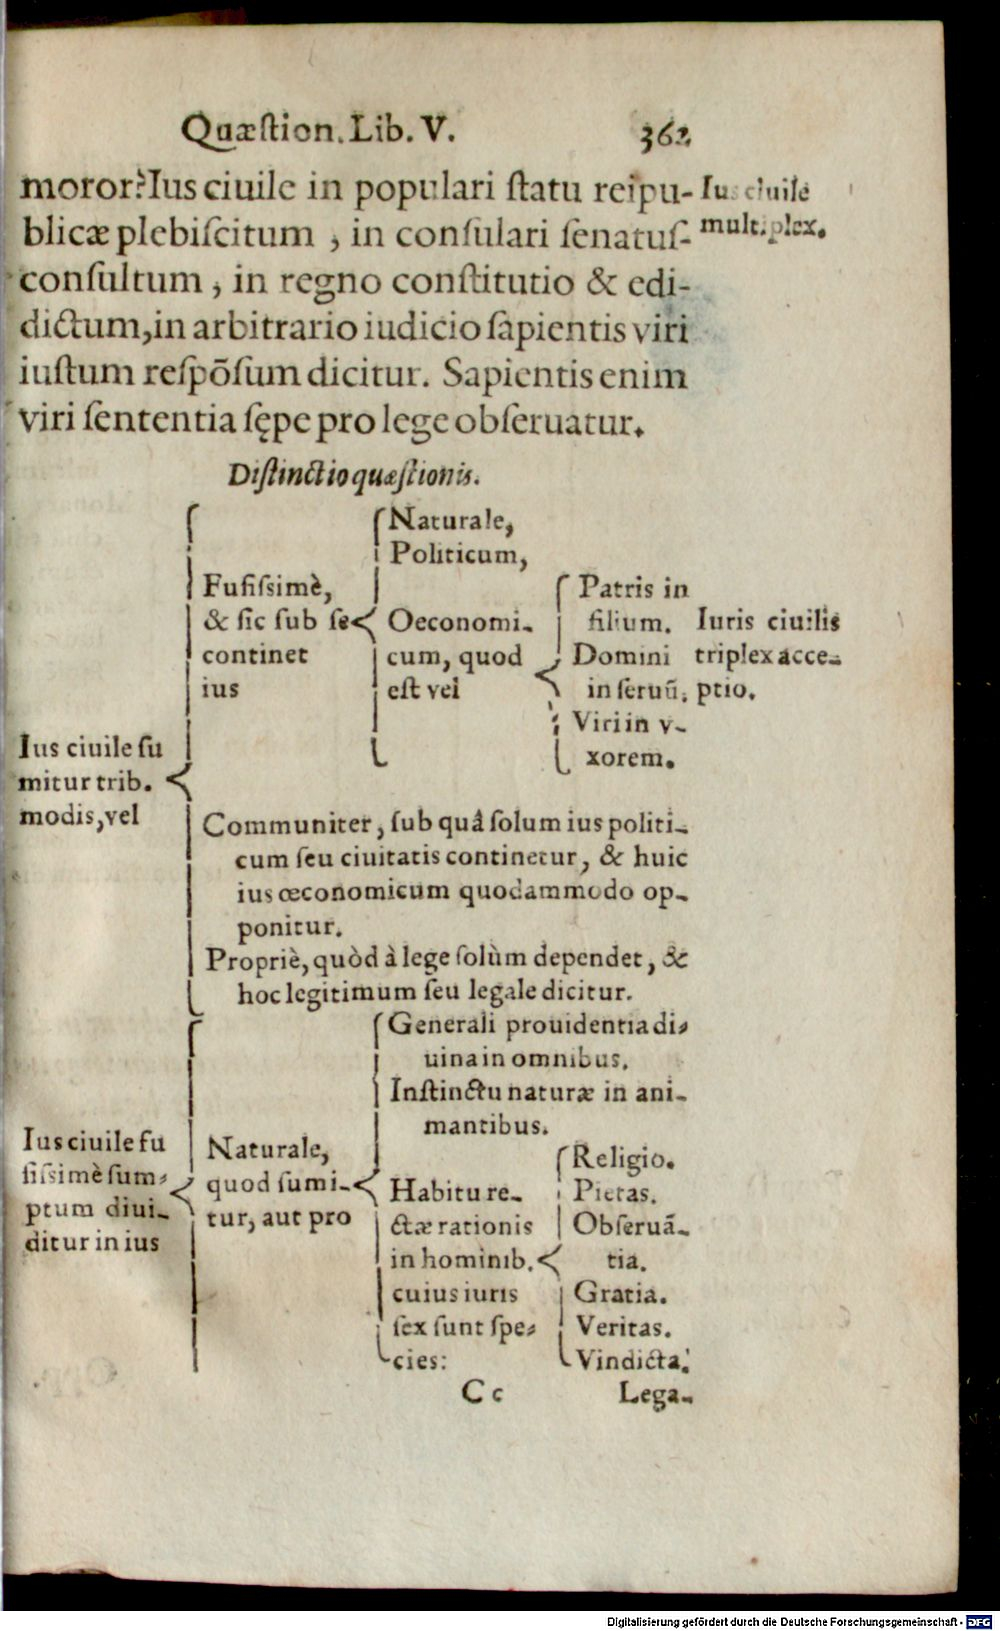 Quæſtion. Lib. V. 362
moror? Ius ciuile in populari ſtatu reipu-
blicæ plebiſcitum, in conſulari ſenatuſ-
conſultum, in regno conſtitutio & edi-
dictum, in arbitrario iudicio ſapientis viri
iuſtum reſpõſum dicitur. Sapientis enim
viri ſententia ſępe pro lege obſeruatur.
Ius ciuile
multiplex.
Diſtinctio quæſtionis.
Ius ciuile ſu
mitur trib.
modis, vel
Fuſiſsimè,
& ſic ſub ſe
continet
ius
Naturale,
Politicum,
Oeconomi-
cum, quod
eſt vel
Patris in
filium.
Domini
in ſeruũ.
Viri in v-
xorem.
Iuris ciuilis
triplex acce-
ptio.
Communiter, ſub quâ ſolum ius politi-
cum ſeu ciuitatis continetur, & huic
ius œconomicum quodammodo op-
ponitur.
Propriè, quòd à lege ſolùm dependet, &
hoc legitimum ſeu legale dicitur.
Ius ciuile fu
ſiſsimè ſum-
ptum diui-
ditur in ius
Naturale,
quod ſumi-
tur, aut pro
Generali prouidentia di-
uina in omnibus.
Inſtinctu naturæ in ani-
mantibus.
Habitu re-
ctæ rationis
in hominib.
cuius iuris
ſex ſunt ſpe-
cies:
Religio.
Pietas.
Obſeruã-
tia.
Gratia.
Veritas.
Vindicta.
Cc Lega-
Digitalisierung gefördert durch die Deutsche Forschungsgemeinschaft - DFG